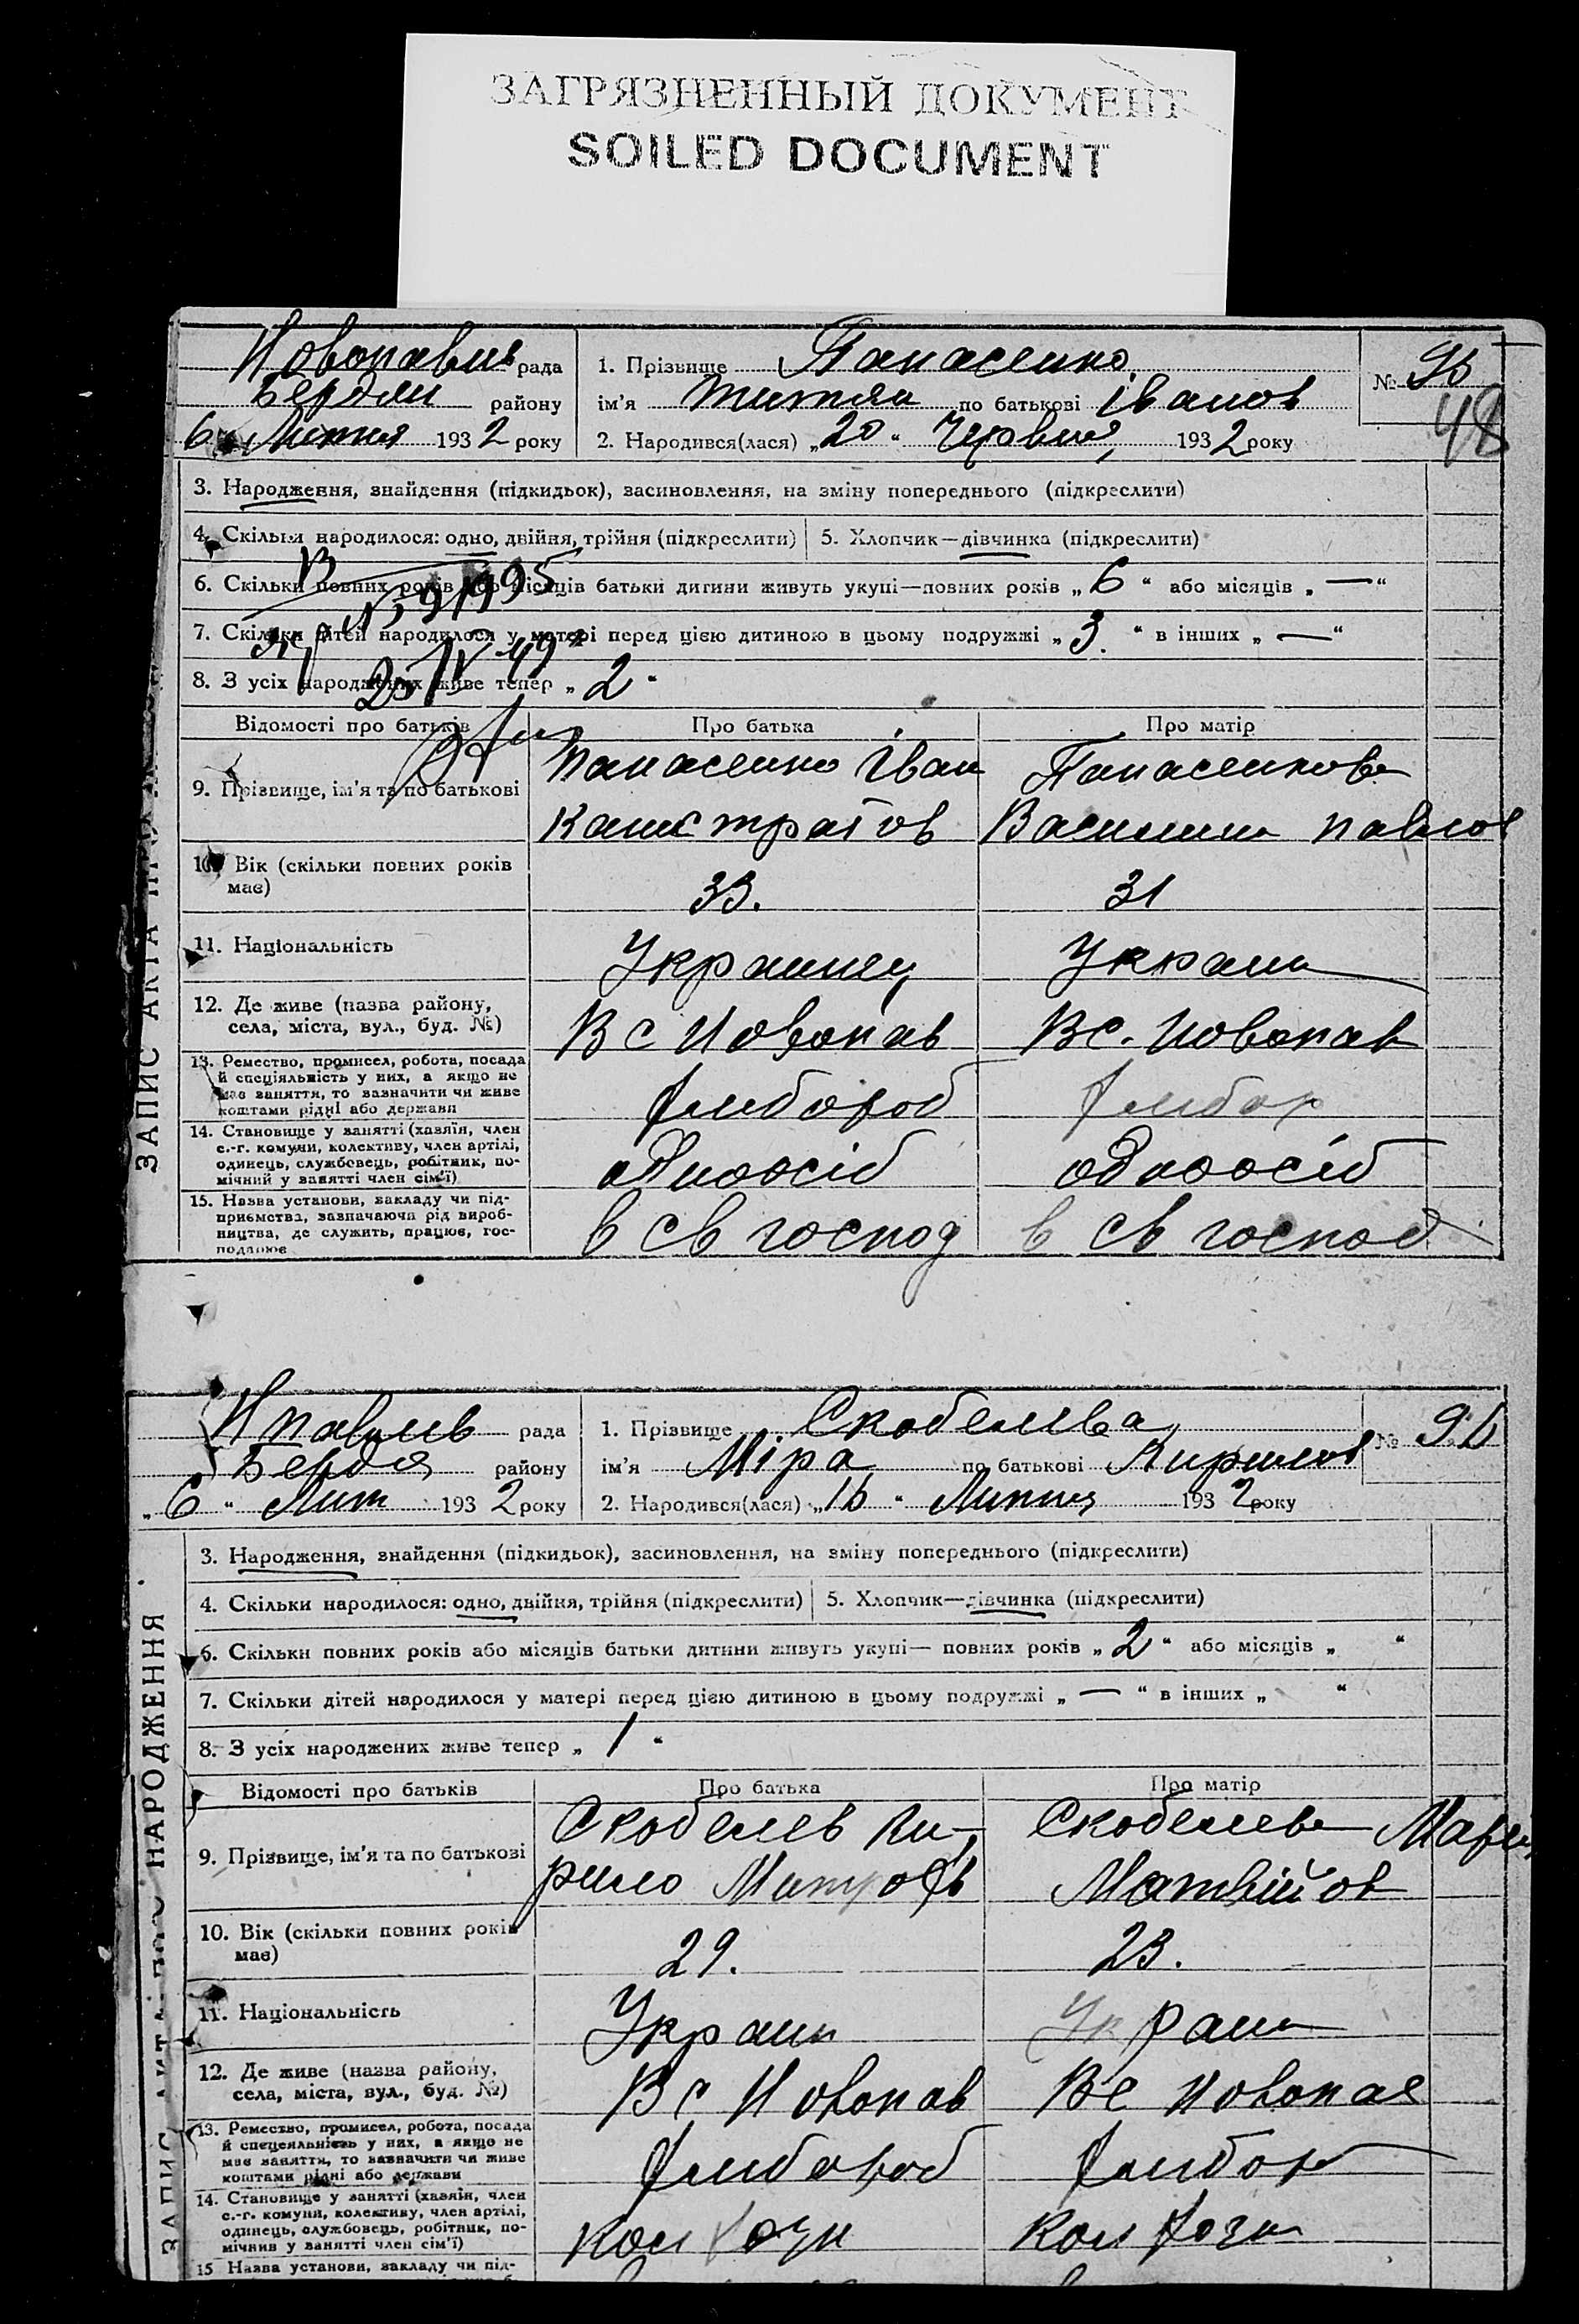 ЗАГРЯЗНЕННЫЙ ДОКУМЕНТ
SOILED DOCUMENT
рада 1. Прізвище Панасенко № 95
района ім'я по батькові Іванов 48
6 Липня 1932 року 2. Народився(лася) „20" Червня 1932 року
3. Народження, знайдення (підкидьок), засиновлення, на зміну попереднього (підкреслити)
4. Скільки народилося: одно, двійня, трійня (підкреслити) 5. Хлопчик—дівчинка (підкреслити)
6. Скільки повних років або місяців батьки дитини живуть укупі—повних років „6" або місяців „—"
7. Скільки дітей народилося у матері перед цією дитиною в цьому подружжі „3." в інших „—"
8. З усіх народжених живе тепер „2"
Відомості про батьків Про батька Про матір
9. Прізвище, ім'я та по батькові Панасенко Іван Панасенкова
Павлов
10. Вік (скільки повних років 33. 31
має)
11. Національність Украинец Украин
12. Де живе (назва району, В с Новопав В с. Новопав
села, міста, вул., буд. №)
13. Ремество, промисел, робота, посада Хлібороб Хлібор
й спеціяльність у них, а якщо не
має заняття, то зазначити чи живе
коштами рідні або держави
14. Становище у занятті (хазяїн, член одноосіб одноосіб
с.-г. комуни, колективу, член артілі,
одинець, службовець, робітник, по-
мічний у занятті член сім'ї)
15. Назва установи, закладу чи під- в св господ в св господ
приємства, зазначаючи рід вироб-
ництва, де служить, працює, гос-
подарює
ЗАПИС АКТА ПРО
рада 1. Прізвище Скобелева № 96
району ім'я Міра по батькові Кирилов
„6" Лип 1932 року 2. Народився(лася) „16" Липня 1932 року
3. Народження, знайдення (підкидьок), засиновлення, на зміну попереднього (підкреслити)
4. Скільки народилося: одно, двійня, трійня (підкреслити) 5. Хлопчик—дівчинка (підкреслити)
6. Скільки повних років або місяців батьки дитини живуть укупі— повних років „2" або місяців „ "
7. Скільки дітей народилося у матері перед цією дитиною в цьому подружжі „—" в інших „ "
8. З усіх народжених живе тепер „1"
Відомості про батьків Про батька Про матір
9. Прізвище, ім'я та по батькові Скобелев Ки- Скобелева Мария
рило Матвійов
10. Вік (скільки повних років 29. 23.
має)
11. Національність Украин Украин
12. Де живе (назва району, В с Новопав В с Новопав
села, міста, вул., буд. №)
13. Ремество, промисел, робота, посада Хлібороб Хлібор
й спецеяльність у них, а якщо не
має заняття, то зазначити чи живе
коштами рідні або держави
14. Становище у занятті (хазяїн, член Колхозн Колхозн
с.-г. комуни, колективу, член артілі,
одинець, службовець, робітник, по-
мічний у занятті член сім'ї)
15 Назва установи, закладу чи під-
ЗАПИС АКТА ПРО НАРОДЖЕННЯ